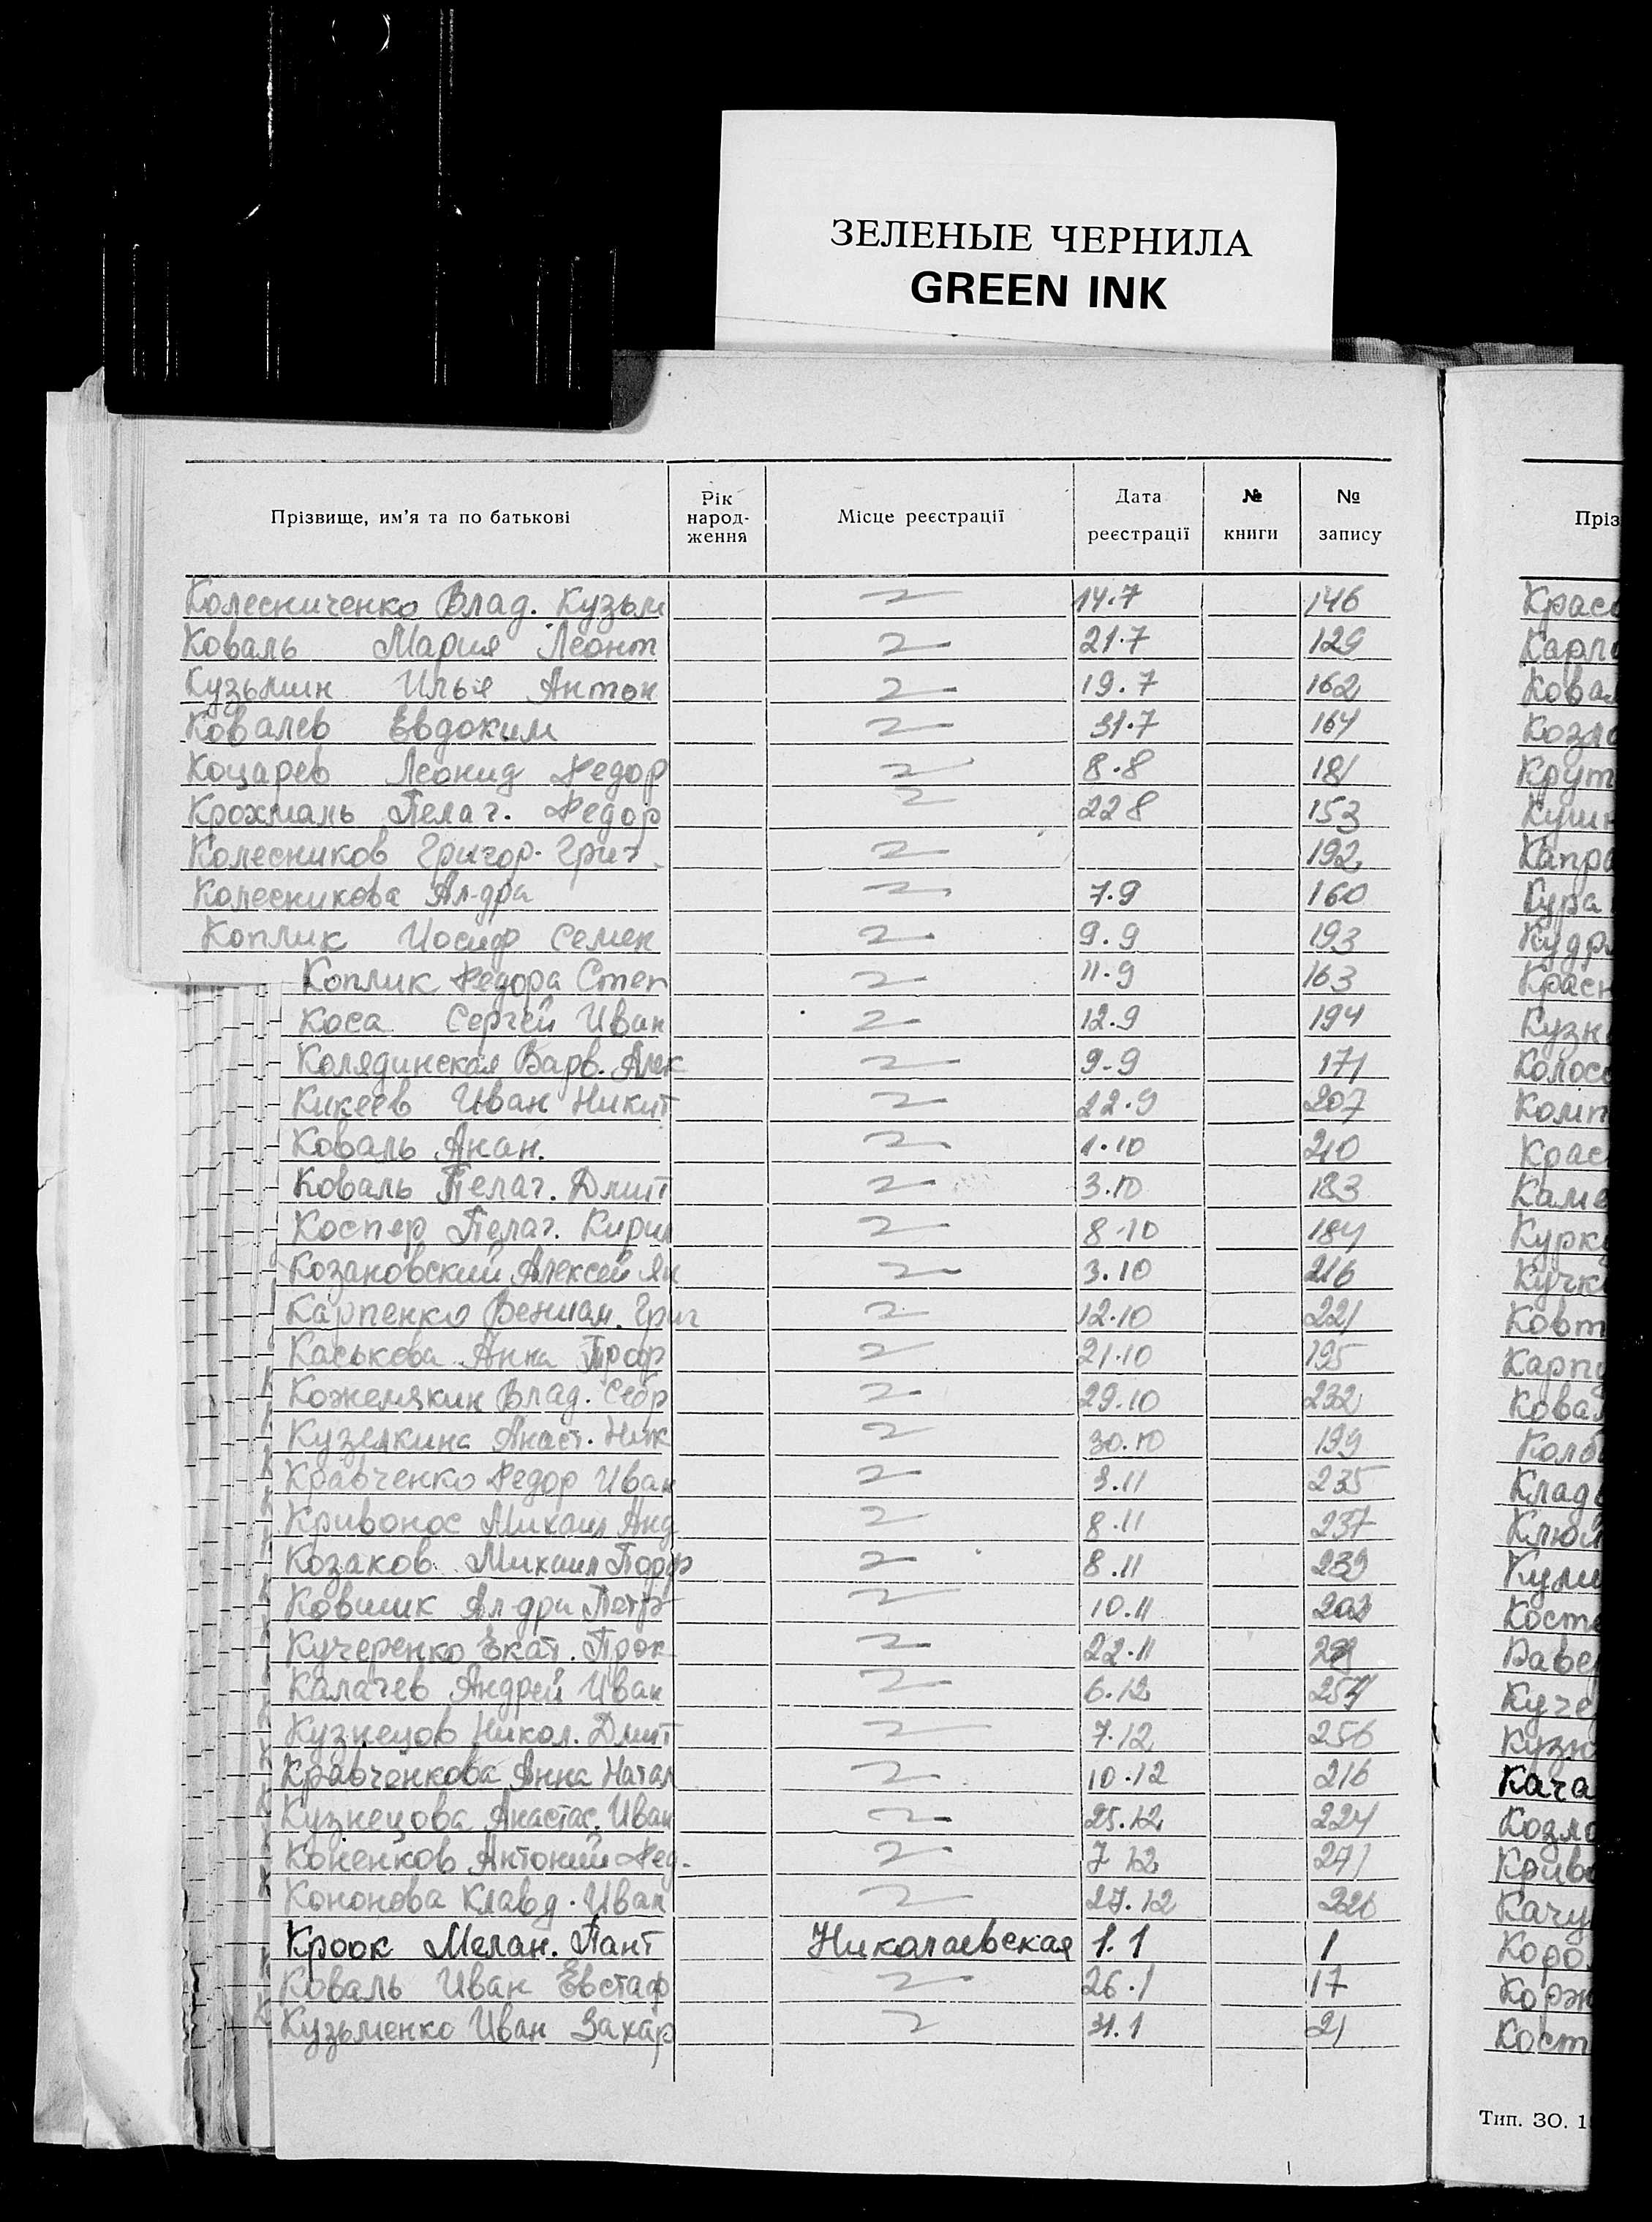 ЗЕЛЕНЫЕ ЧЕРНИЛА
GREEN INK
Прізвище, им'я та по батькові Рік народ- ження Місце реєстрації Дата реєстрації № книги № запису
Колесниченко Влад. Кузьм 14.7 146
Коваль Мария Леонт 21.7 129
Кузьмин Илья Антон 19.7 162
Ковалев Евдоким 31.7 164
Коцарев Леонид Федор 8.8 181
Крохмаль Пелаг. Федор 22 8 153
Колесников Григор. Григ. 192
Колесникова Ал-дра 7.9 160
Коплик Иосиф Семен 9.9 193
Коплик Федора Степ 11.9 163
Коса Сергей Иван 12.9 194
Колядинская Варв. Алек 9.9 171
Кикеев Иван Никит 22.9 207
Коваль Анан. 1.10 210
Коваль Пелаг. Дмит 3.10 183
Коспер Пелаг. Кирил 8.10 184
Козановский Алексей Ян 3.10 216
Карпенко Вениам. Григ 12.10 221
Каськова Анна Проф 21.10 195
Кожемякин Влад. 29.10 232
Кузякина Анаст. Ник 30.10 199
Кравченко Федор Иван 3.11 235
Кривонос Михаил Анд 8.11 237
Козаков Михаил 8.11 239
Ковшик Ал-дри Петр 10.11
Кучеренко Екат. Прок 22.11
Калачев Андрей Иван 6.12
Кузнецов Никол. Дмит 7.12 256
Кравченкова Анна Натал 10.12 216
Кузнецова Анастас. Иван 25.12 224
Коненков Антоний Фед. 7 12 271
Кононова Клавд. Иван 27.12 226
Кроок Мелан. Пант Николаевская 1.1 1
Коваль Иван Евстаф 26.1 17
Кузьменко Иван Захар 31.1 21
Пріз
Крас
Карп
Ковал
Козло
Крут
Кушн
Капра
Кура
Кудр
Красн
Кузн
Колос
Комп
Крас
Каме
Курк
Кучк
Ковт
Карп
Ковал
Колб
Клад
Клюй
Кули
Кост
Куче
Кузн
Кача
Козло
Криво
Качу
Корол
Корж
Кост
Тип. ЗО. 1